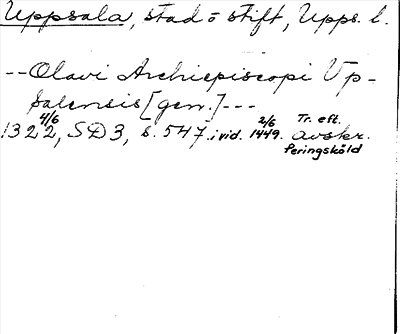 Uppsala, stad o stift, Upps. l.
-- Olavi Archiepiscopi Up-
salensis [gen.] ---
1322 4/6, SD 3, s. 547. i vid. 2/6 1449. Tr. eft. avskr.
Peringsköld